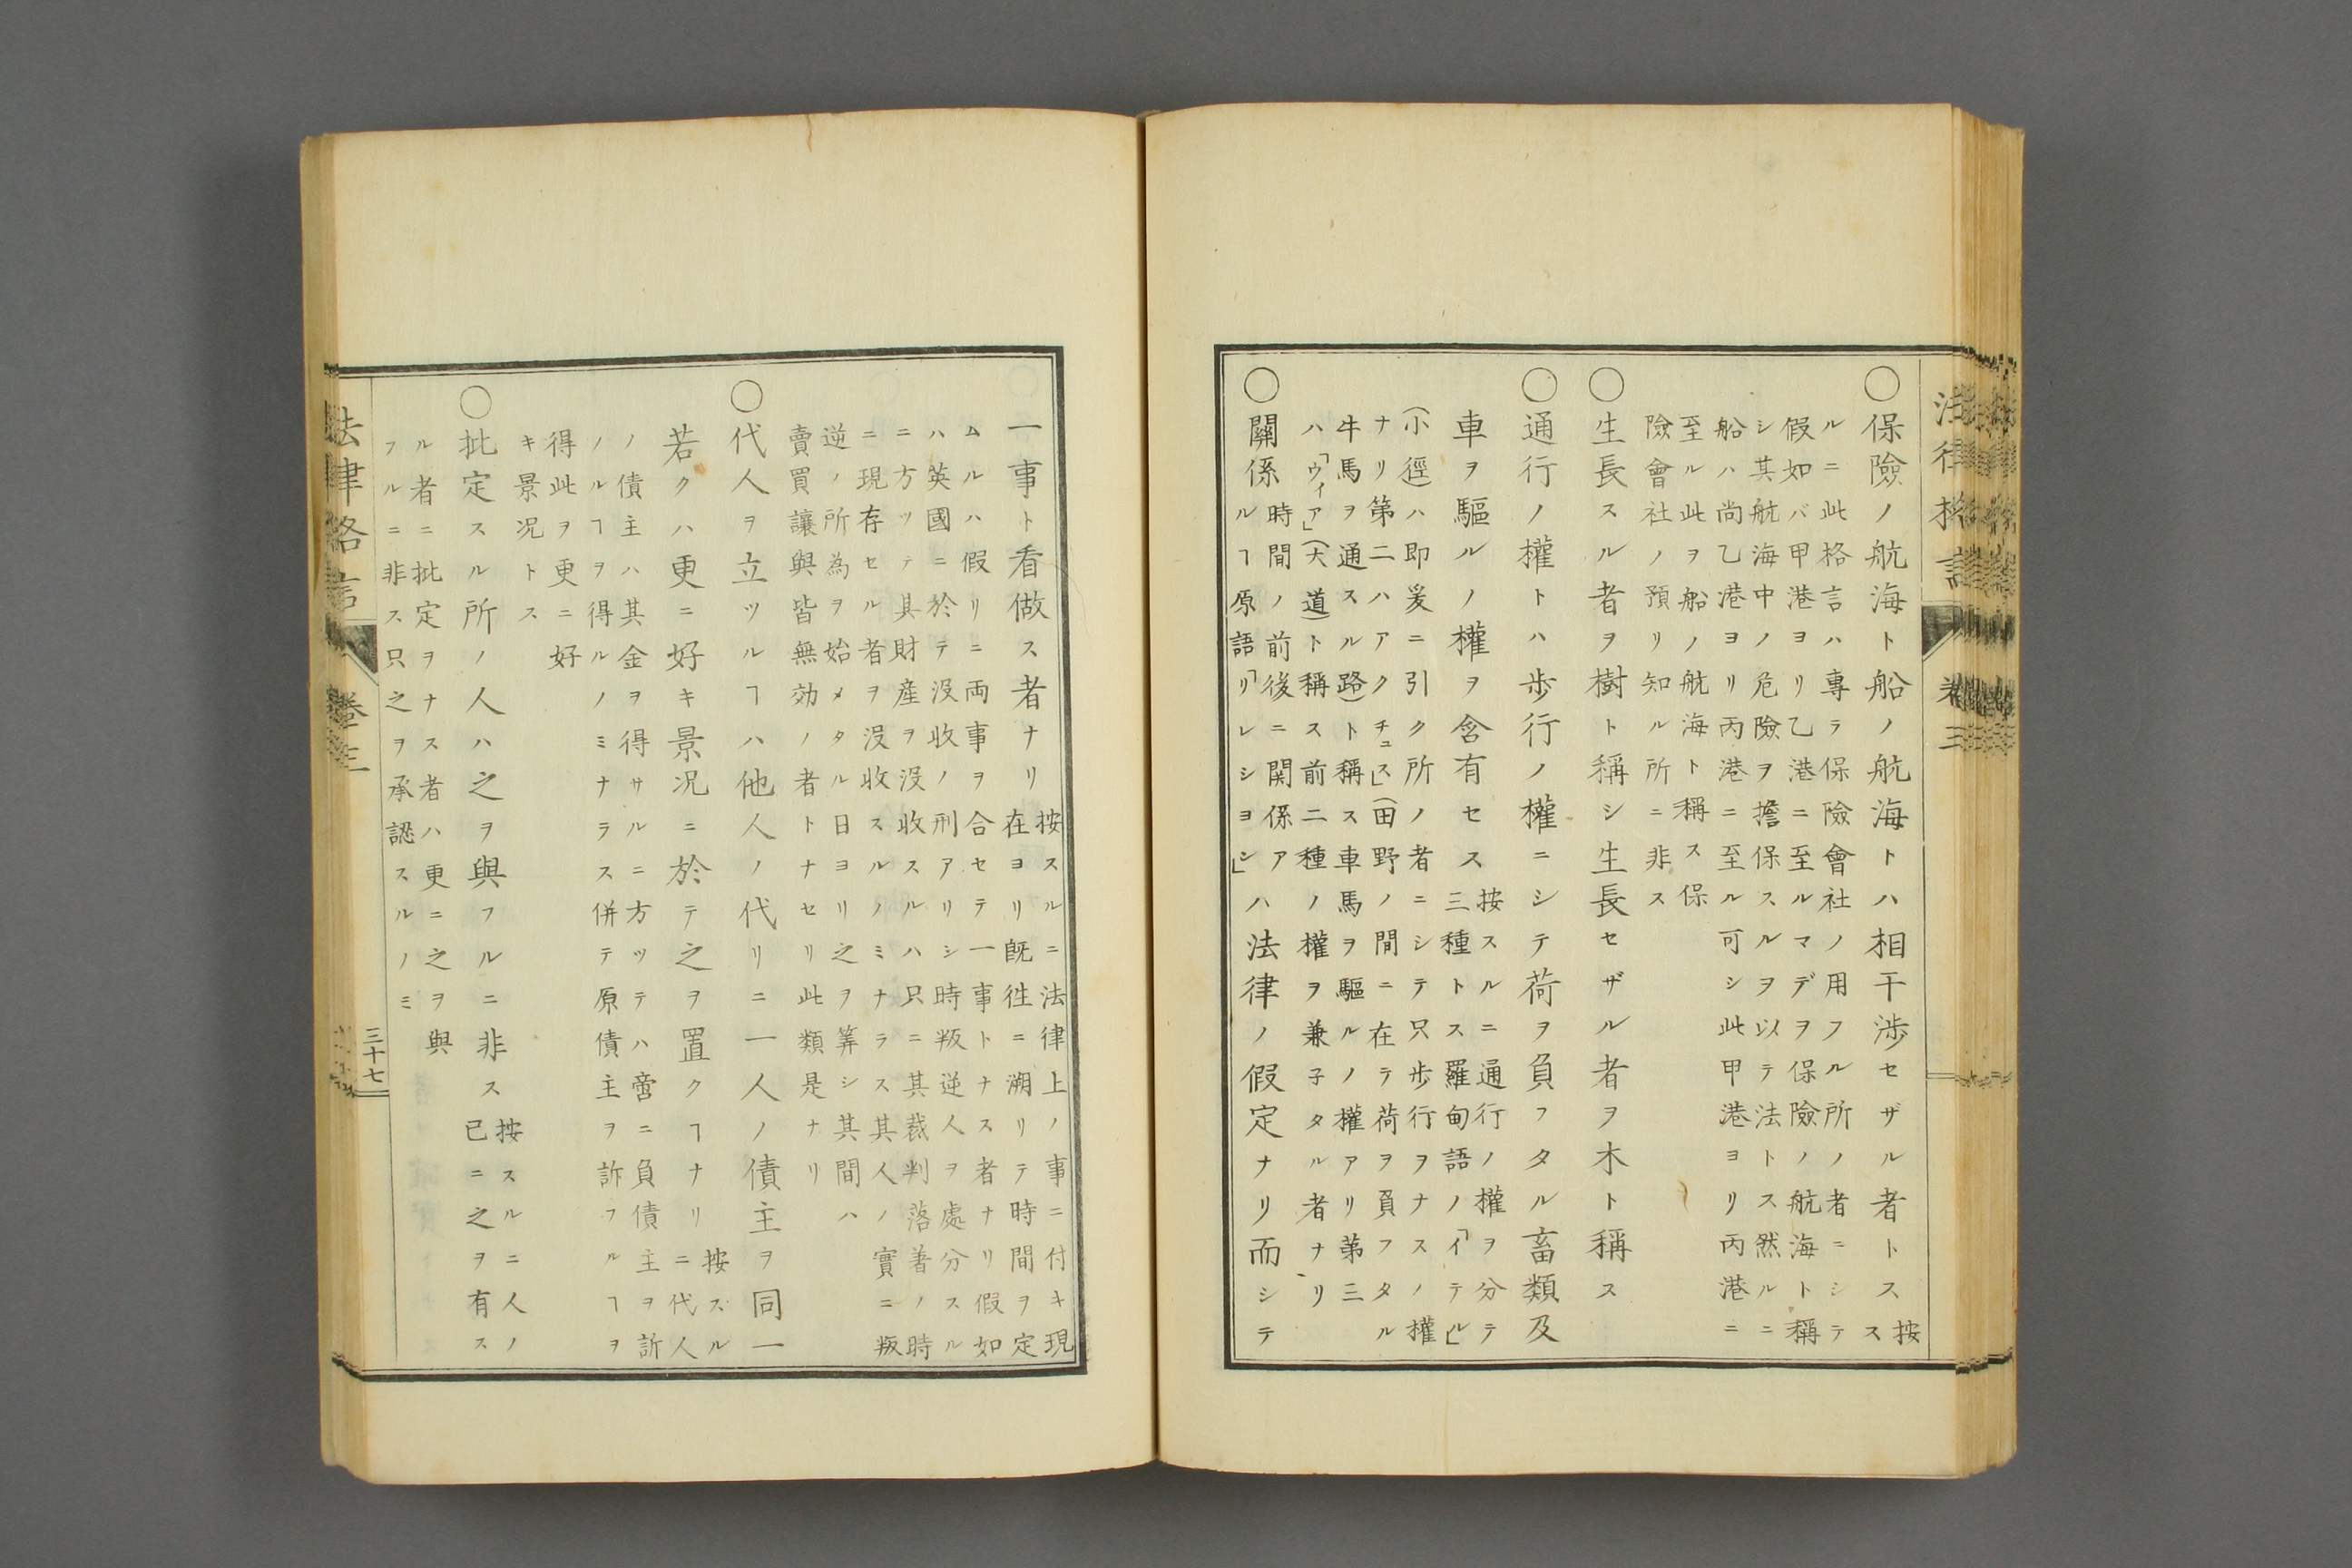 法律格言 卷三
○保險ノ航海ト船ノ航海トハ相干渉セザル者トス
按
ス
ルニ此格言ハ專ラ保險會社ノ用フル所ノ者ニシテ
假如バ甲港ヨリ乙港ニ至ルマデヲ保險ノ航海ト稱
シ其航海中ノ危險ヲ擔保スルヲ以テ法トス然ルニ
船ハ尚乙港ヨリ丙港ニ至ル可シ此甲港ヨリ丙港ニ
至ル此ヲ船ノ航海ト稱ス保
險會社ノ預リ知ル所ニ非ス
○生長スル者ヲ樹ト稱シ生長セザル者ヲ木ト稱ス
○通行ノ權トハ歩行ノ權ニシテ荷ヲ負フタル畜類及
車ヲ驅ルノ權ヲ含有セス
按スルニ通行ノ權ヲ分テ
三種トス羅甸語ノ「イテル」
(小徑)ハ即爰ニ引ク所ノ者ニシテ只歩行ヲナスノ權
ナリ第二ハアクチュス」(田野ノ間ニ在テ荷ヲ負フタル
牛馬ヲ通スル路)ト稱ス車馬ヲ驅ルノ權アリ第三
ハ「ウィア」(大道)ト稱ス前二種ノ權ヲ兼子タル者ナリ
關係
時間ノ前後ニ関係ア
ルヿ原語「リレシヨシ」
ハ法律ノ假定ナリ而シテ
一事ト看做ス者ナリ
按スルニ法律上ノ事ニ付キ現
在ヨリ既往ニ溯リテ時間ヲ定
ムルハ假リニ両事ヲ合セテ一事トナス者ナリ假如
ハ英國ニ於テ没收ノ刑アリシ時叛逆人ヲ處分スル
ニ方ツテ其財産ヲ没收スルハ只ニ其裁判落著ノ時
ニ現存セル者ヲ没收スルノミナラス其人ノ實ニ叛
逆ノ所為ヲ始メタル日ヨリ之ヲ筭シ其間ハ
賣買讓與皆無効ノ者トナセリ此類是ナリ
○代人ヲ立ツルヿハ他人ノ代リニ一人ノ債主ヲ同一
若クハ更ニ好キ景况ニ於テ之ヲ置クヿナリ
按スル
ニ代人
ノ債主ハ其金ヲ得サルニ方ツテハ啻ニ負債主ヲ訴
ノルヿヲ得ルノミナラス併テ原債主ヲ訴フルヿヲ
得此ヲ更ニ好
キ景况トス
○批定スル所ノ人ハ之ヲ與フルニ非ス
按スルニ人ノ
已ニ之ヲ有ス
ル者ニ批定ヲナス者ハ更ニ之ヲ與
フルニ非ス只之ヲ承認スルノミ
三十七
法律格言 卷三